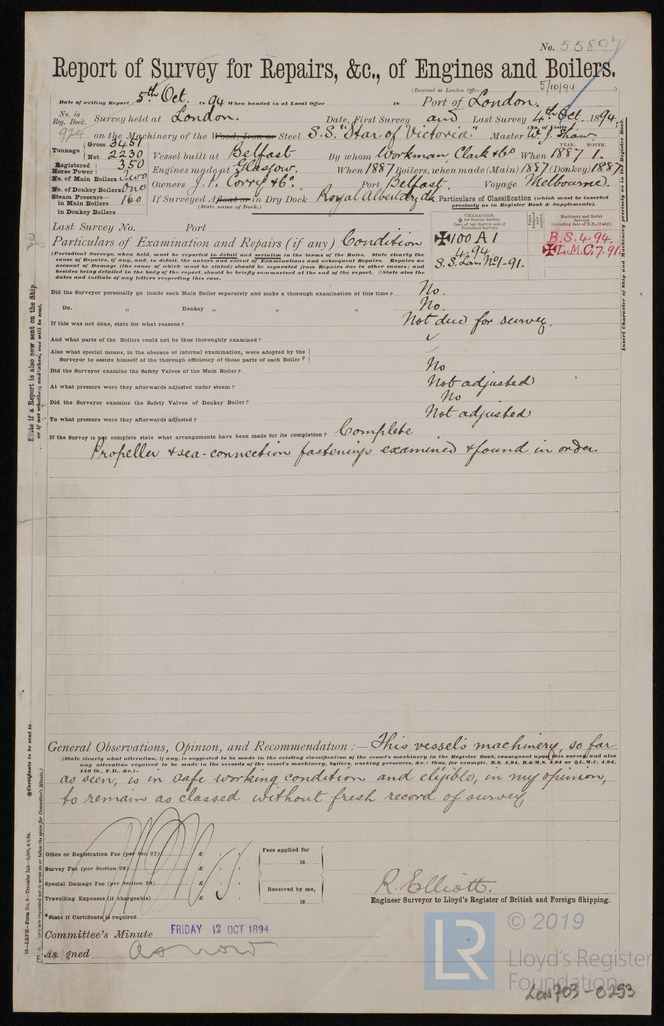 No. 55897
Report of Survey for Repairs, &c., of Engines and Boilers.
(Received at London Office 5/10/94
Date of writing Report 5th Oct. 1894 When handed in at Local Office 18 Port of London.
No. in Reg. Book. Survey held at London. Date, First Survey and Last Survey 4th Oct. 1894
974 on the Machinery of the Wood, Iron or Steel S.S. "Star of Victoria" Master W. J. Shaw
Tonnage Gross 3451 Net 2230 Vessel built at Belfast By whom Workman, Clark & Co When 1887 1.
Registered Horse Power 350 Engines made at Glasgow. When 1887 Boilers, when made (Main) 1887 (Donkey) 1887
No. of Main Boilers two Owners J. P. Corry & Co. Port Belfast. Voyage Melbourne.
No. of Donkey Boilers one
Steam Pressure in Main Boilers 160 If Surveyed Afloat or in Dry Dock Royal Albert dry dk
(State name of Dock.)
in Donkey Boilers
Particulars of Classification (which must be inserted precisely as in Register Book & Supplements).
Last Survey No. Port
Particulars of Examination and Repairs (if any) Condition
CHARACTER.
100 A 1
4.94
S.S. Lon. No1-91.
B.S. 4.94.
L.M.C. 7.91.
Did the Surveyor personally go inside each Main Boiler separately and make a thorough examination at this time? No.
Do. „ Donkey „ „ „ No.
If this was not done, state for what reasons? Not due for survey.
And what parts of the Boilers could not be thoroughly examined?
Also what special means, in the absence of internal examination, were adopted by the Surveyor to assure himself of the thorough efficiency of those parts of each Boiler?
Did the Surveyor examine the Safety Valves of the Main Boiler? No
At what pressure were they afterwards adjusted under steam? Not adjusted
Did the Surveyor examine the Safety Valves of Donkey Boiler? No
To what pressure were they afterwards adjusted? Not adjusted
If the Survey is not complete state what arrangements have been made for its completion? Complete
Propeller & sea-connection fastenings examined & found in order.
General Observations, Opinion, and Recommendation:— This vessel's machinery, so far
as seen, is in safe working condition and eligible, in my opinion,
to remain as classed without fresh record of survey
Office or Registration Fee (per Sec. 27) £ : :
Fees applied for
18
Survey Fee (per Section 28) £ : :
Special Damage Fee (per Section 28) £ : :
Received by me,
18
Travelling Expenses (if chargeable) £ : :
R. Elliott.
Engineer Surveyor to Lloyd's Register of British and Foreign Shipping.
*State if Certificate is required
Committee's Minute FRIDAY 12 OCT 1894
Assigned as now
© 2019
LR
Lloyd's Register
Foundation
Lon 703-0253